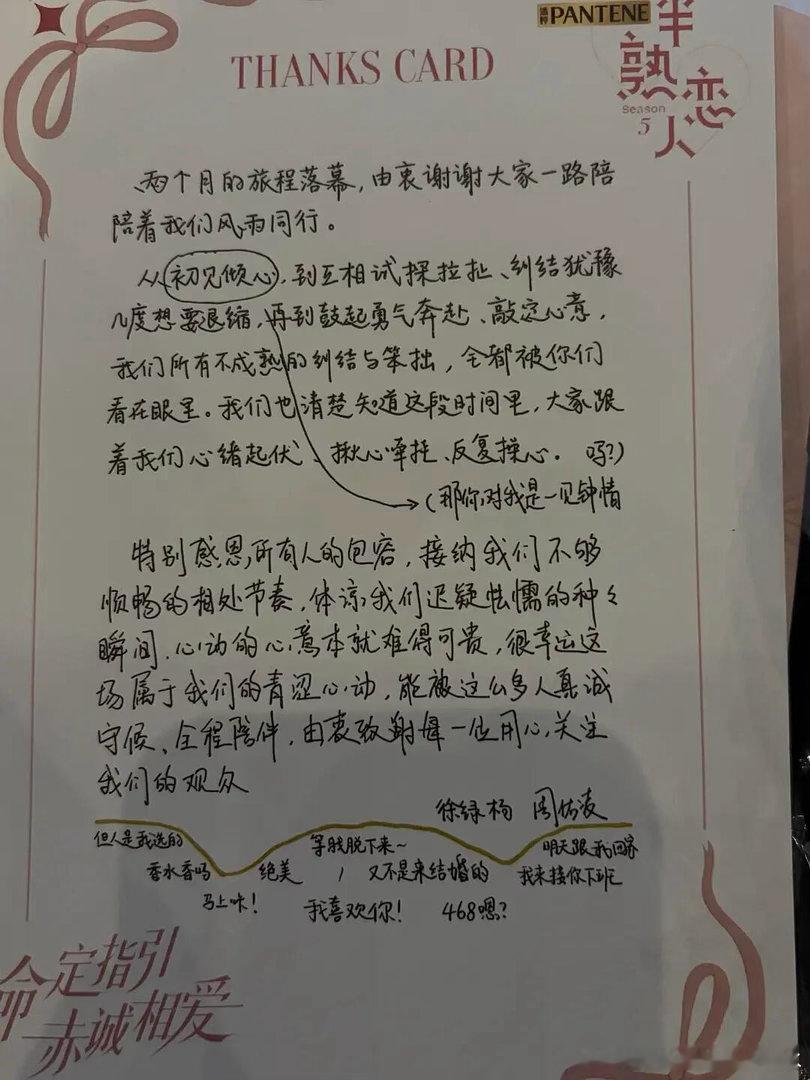 潘婷 PANTENE
半熟恋人
Season 5
THANKS CARD
两个月的旅程落幕，由衷谢谢大家一路陪
陪着我们风雨同行。
从初见倾心，到互相试探拉扯、纠结犹豫
几度想要退缩，再到鼓起勇气奔赴、敲定心意，
我们所有不成熟的纠结与笨拙，全都被你们
看在眼里。我们也清楚知道这段时间里，大家跟
着我们心绪起伏、揪心牵挂、反复操心。 吗？)
(那你对我是一见钟情
特别感恩所有人的包容，接纳我们不够
顺畅的相处节奏，体谅我们迟疑怯懦的种々
瞬间、心动的心意本就难得可贵，很幸运这
场属于我们的青涩心动，能被这么多人真诚
守候、全程陪伴，由衷致谢每一位用心关注
我们的观众
徐绿杨 周佑凌
但人是我选的 等我脱下来~ 明天跟我回家
香水香吗 绝美 ， 又不是来结婚的 我来接你下班
马上咔！ 我喜欢你！ 468嗯？
命定指引
赤诚相爱